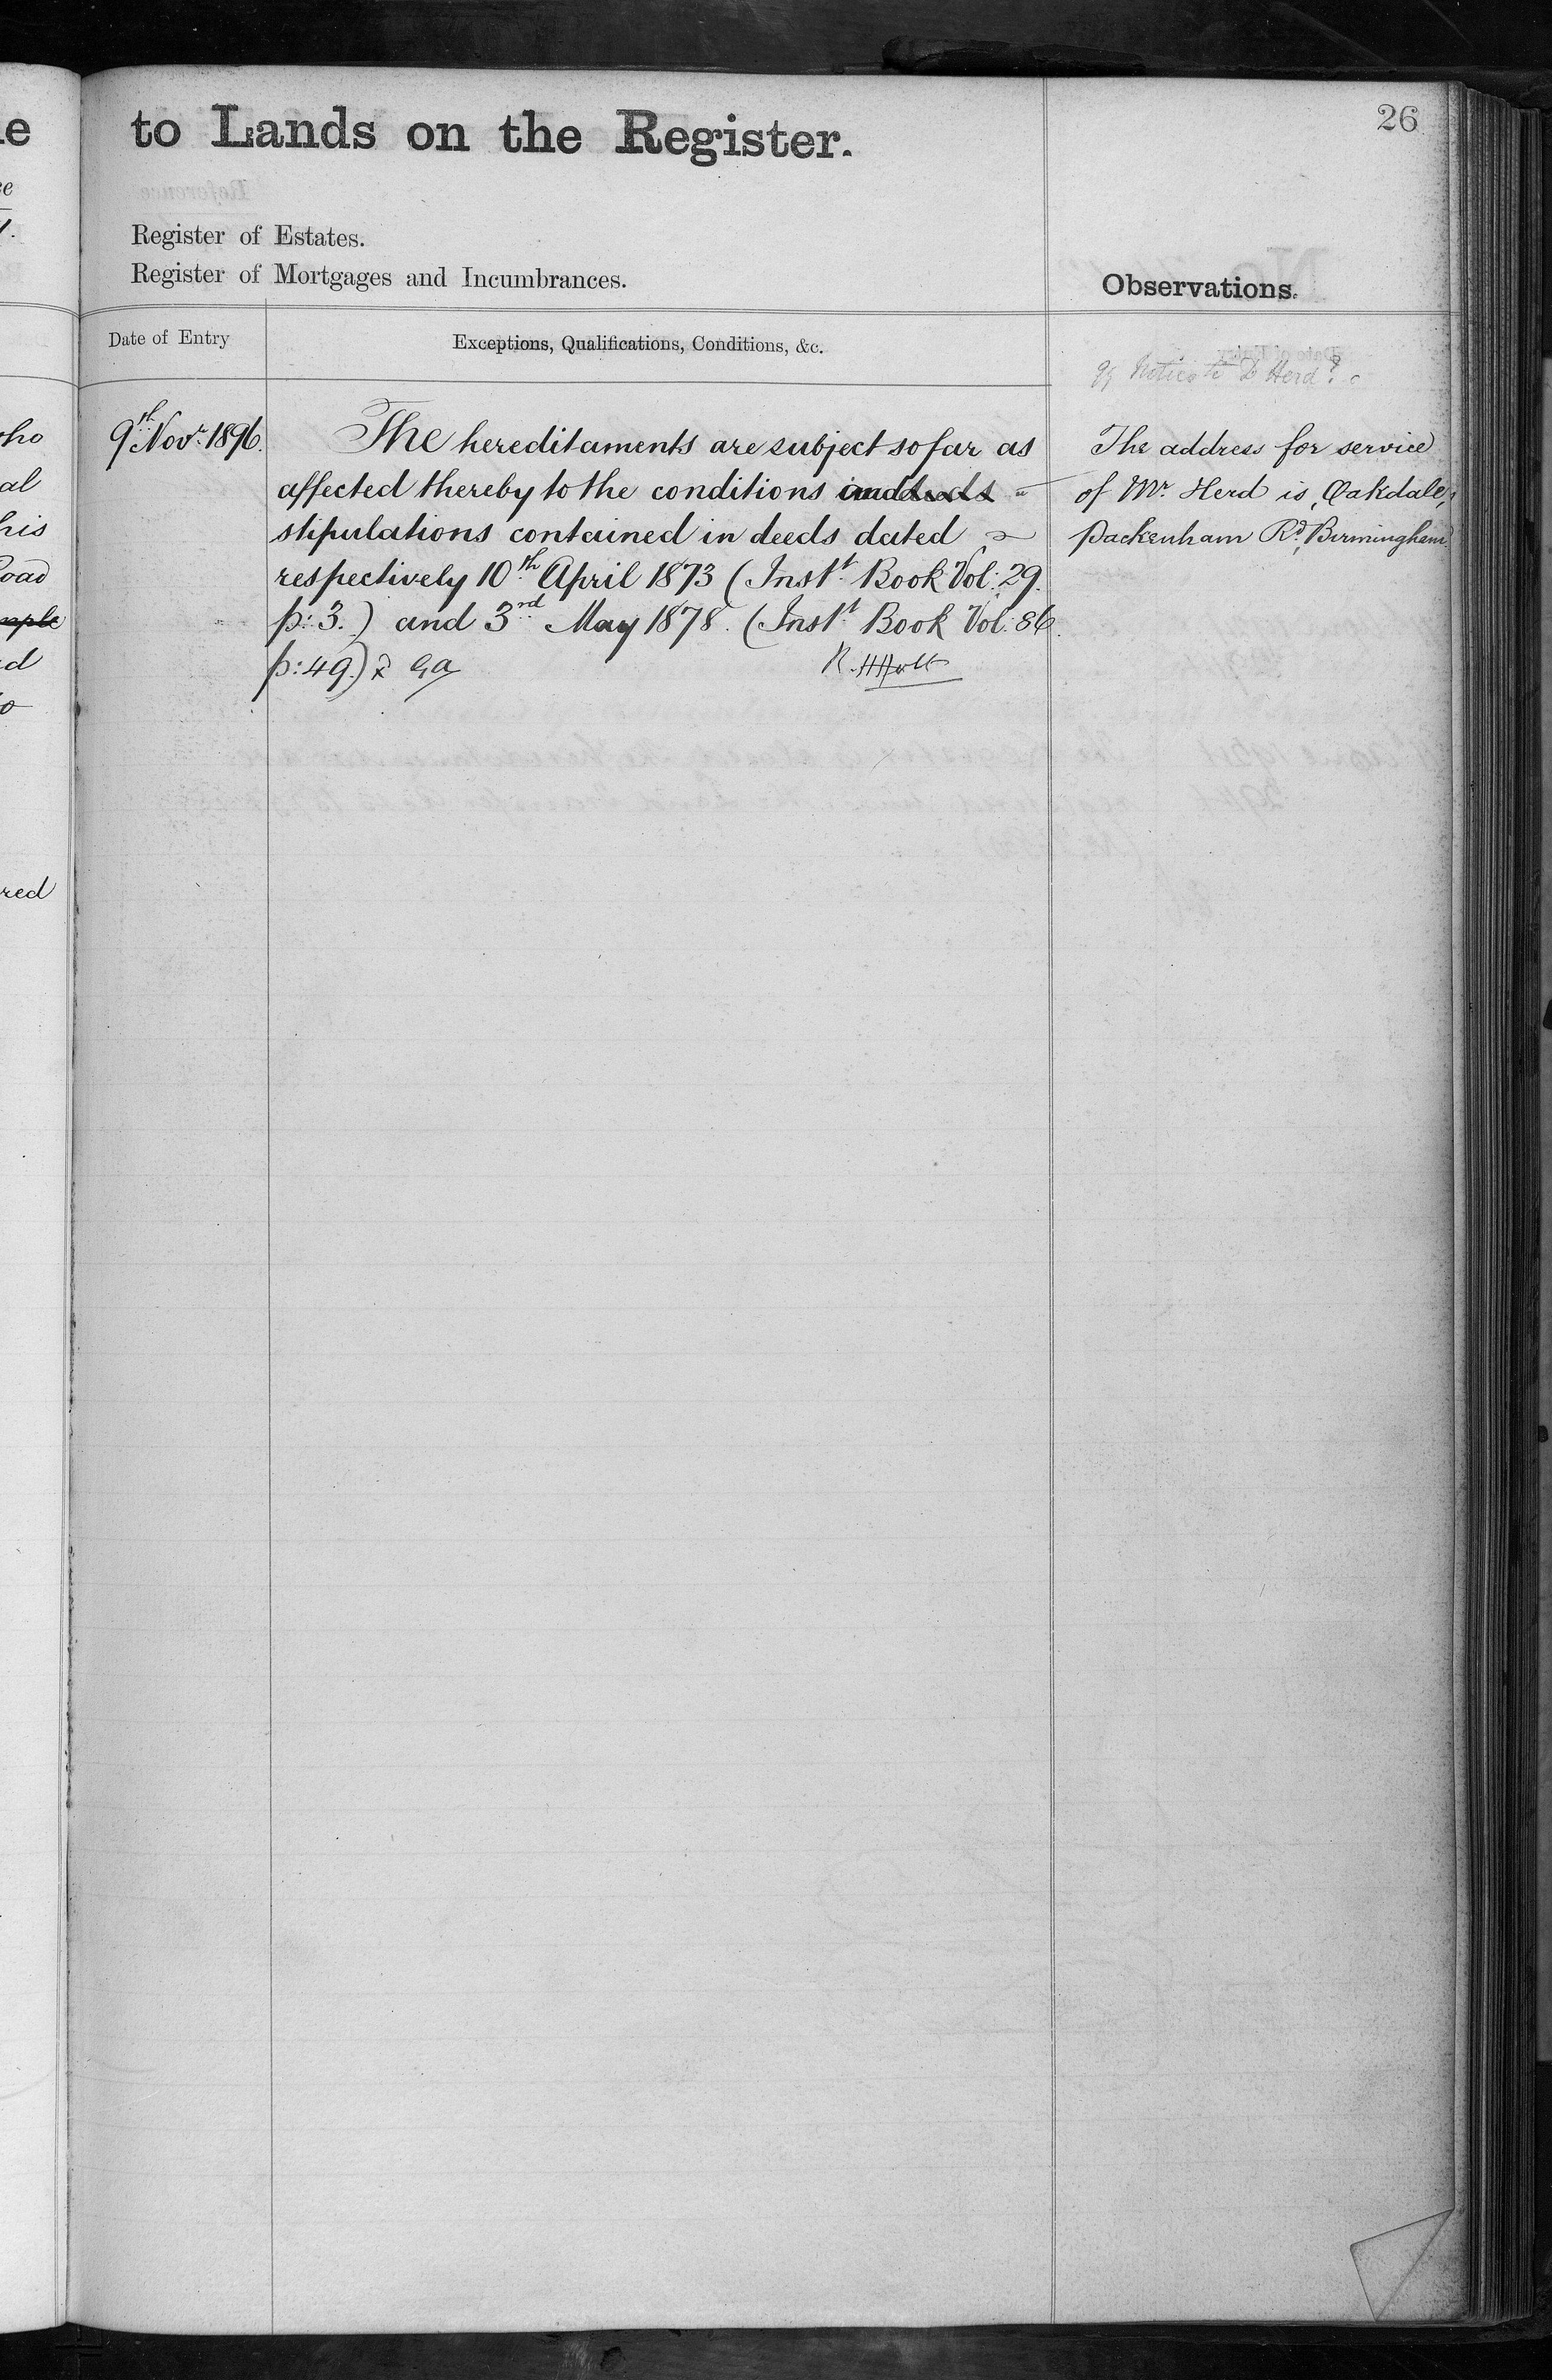 to Lands on the Register.
26
Register of Estates.
Register of Mortgages and Incumbrances.
Observations.
Date of Entry
Exceptions, Qualifications, Conditions, &c.
9th Novr. 1896.
The hereditaments are subject so far as
affected thereby to the conditions and
stipulations contained in deeds dated
respectively 10th April 1873 (Instt. Book Vol: 29.
p: 3.) and 3rd May 1878. (Instt. Book Vol: 86.
p: 49.)
R. H Holt
Notice to Herd?
The address for service
of Mr. Herd is, Oakdale,
Packenham Rd., Birmingham.
ho
al
his
oad
d
red